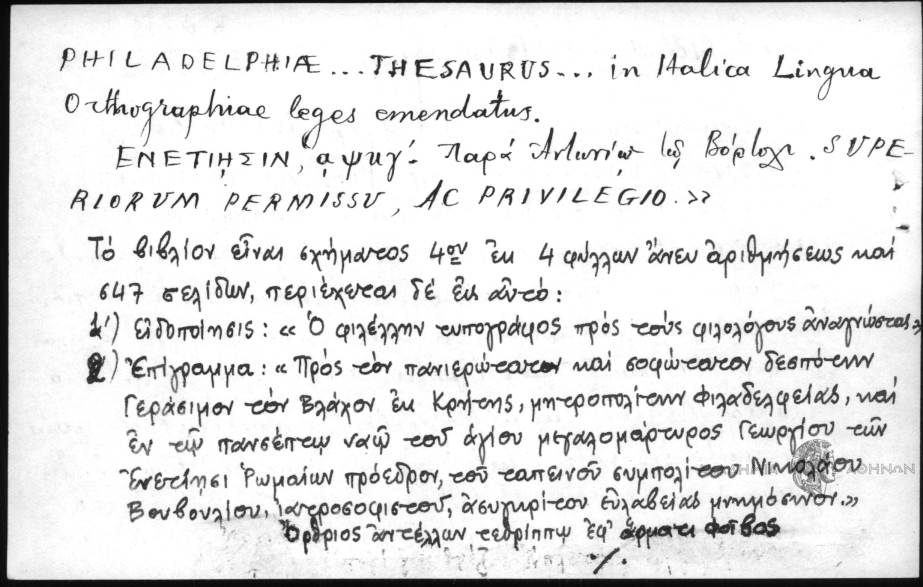 PHILADELPHIÆ... THESAURUS... in Italica Lingua
Orthographiae leges emendatus.
ΕΝΕΤΙΗΣΙΝ, αψκγ΄. Παρά Ἀντωνίῳ τῷ Βόρτολι. SUPE-
RIORUM PERMISSU, AC PRIVILEGIO.»
Τό βιβλίον εἶναι σχήματος 4ον ἐκ 4 φύλλων ἄνευ ἀριθμήσεως καί
647 σελίδων, περιέχεται δέ εἰς αὐτό:
1) Εἰδοποίησις: « Ὁ φιλέλλην τυπογράφος πρός τούς φιλολόγους ἀναγνώστας»
2) Ἐπίγραμμα: « Πρός τόν πανιερώτατον καί σοφώτατον δεσπότην
Γεράσιμον τόν Βλάχον ἐκ Κρήτης, μητροπολίτην Φιλαδελφείας, καί
ἐν τῷ πανσέπτῳ ναῷ τοῦ ἁγίου μεγαλομάρτυρος Γεωργίου τῶν
Ἐνετίησι Ῥωμαίων πρόεδρον, τοῦ ταπεινοῦ συμπολίτου Νικολάου
Βουβουλίου, ἰατροσοφιστοῦ, ἀσυγκρίτου εὐλαβείας μνημόσυνον.»
Ὄρθριος ἀντέλλων τεθρίππῳ ἐφ' ἅρματι Φοῖβος
./.